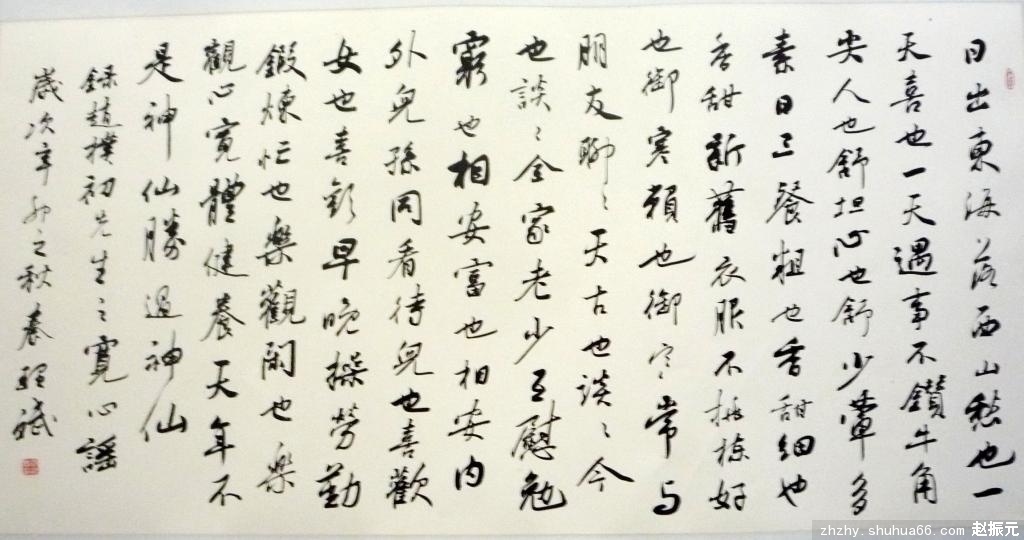 日出東海落西山愁也一
天喜也一天遇事不鑽牛角
尖人也舒坦心也舒少葷多
素日三餐粗也香甜細也
香甜新舊衣服不挑揀好
也御寒賴也御寒常与
朋友聊々天古也談々今
也談々全家老少互慰勉
窮也相安富也相安内
外兒孫同看待兒也喜歡
女也喜歡早晚操勞勤
鍛煉忙也樂觀閑也樂
觀心寬體健養天年不
是神仙勝過神仙
録趙樸初先生之寬心謡
歲次辛卯之秋
zhzhy.shuhua66.com 赵振元